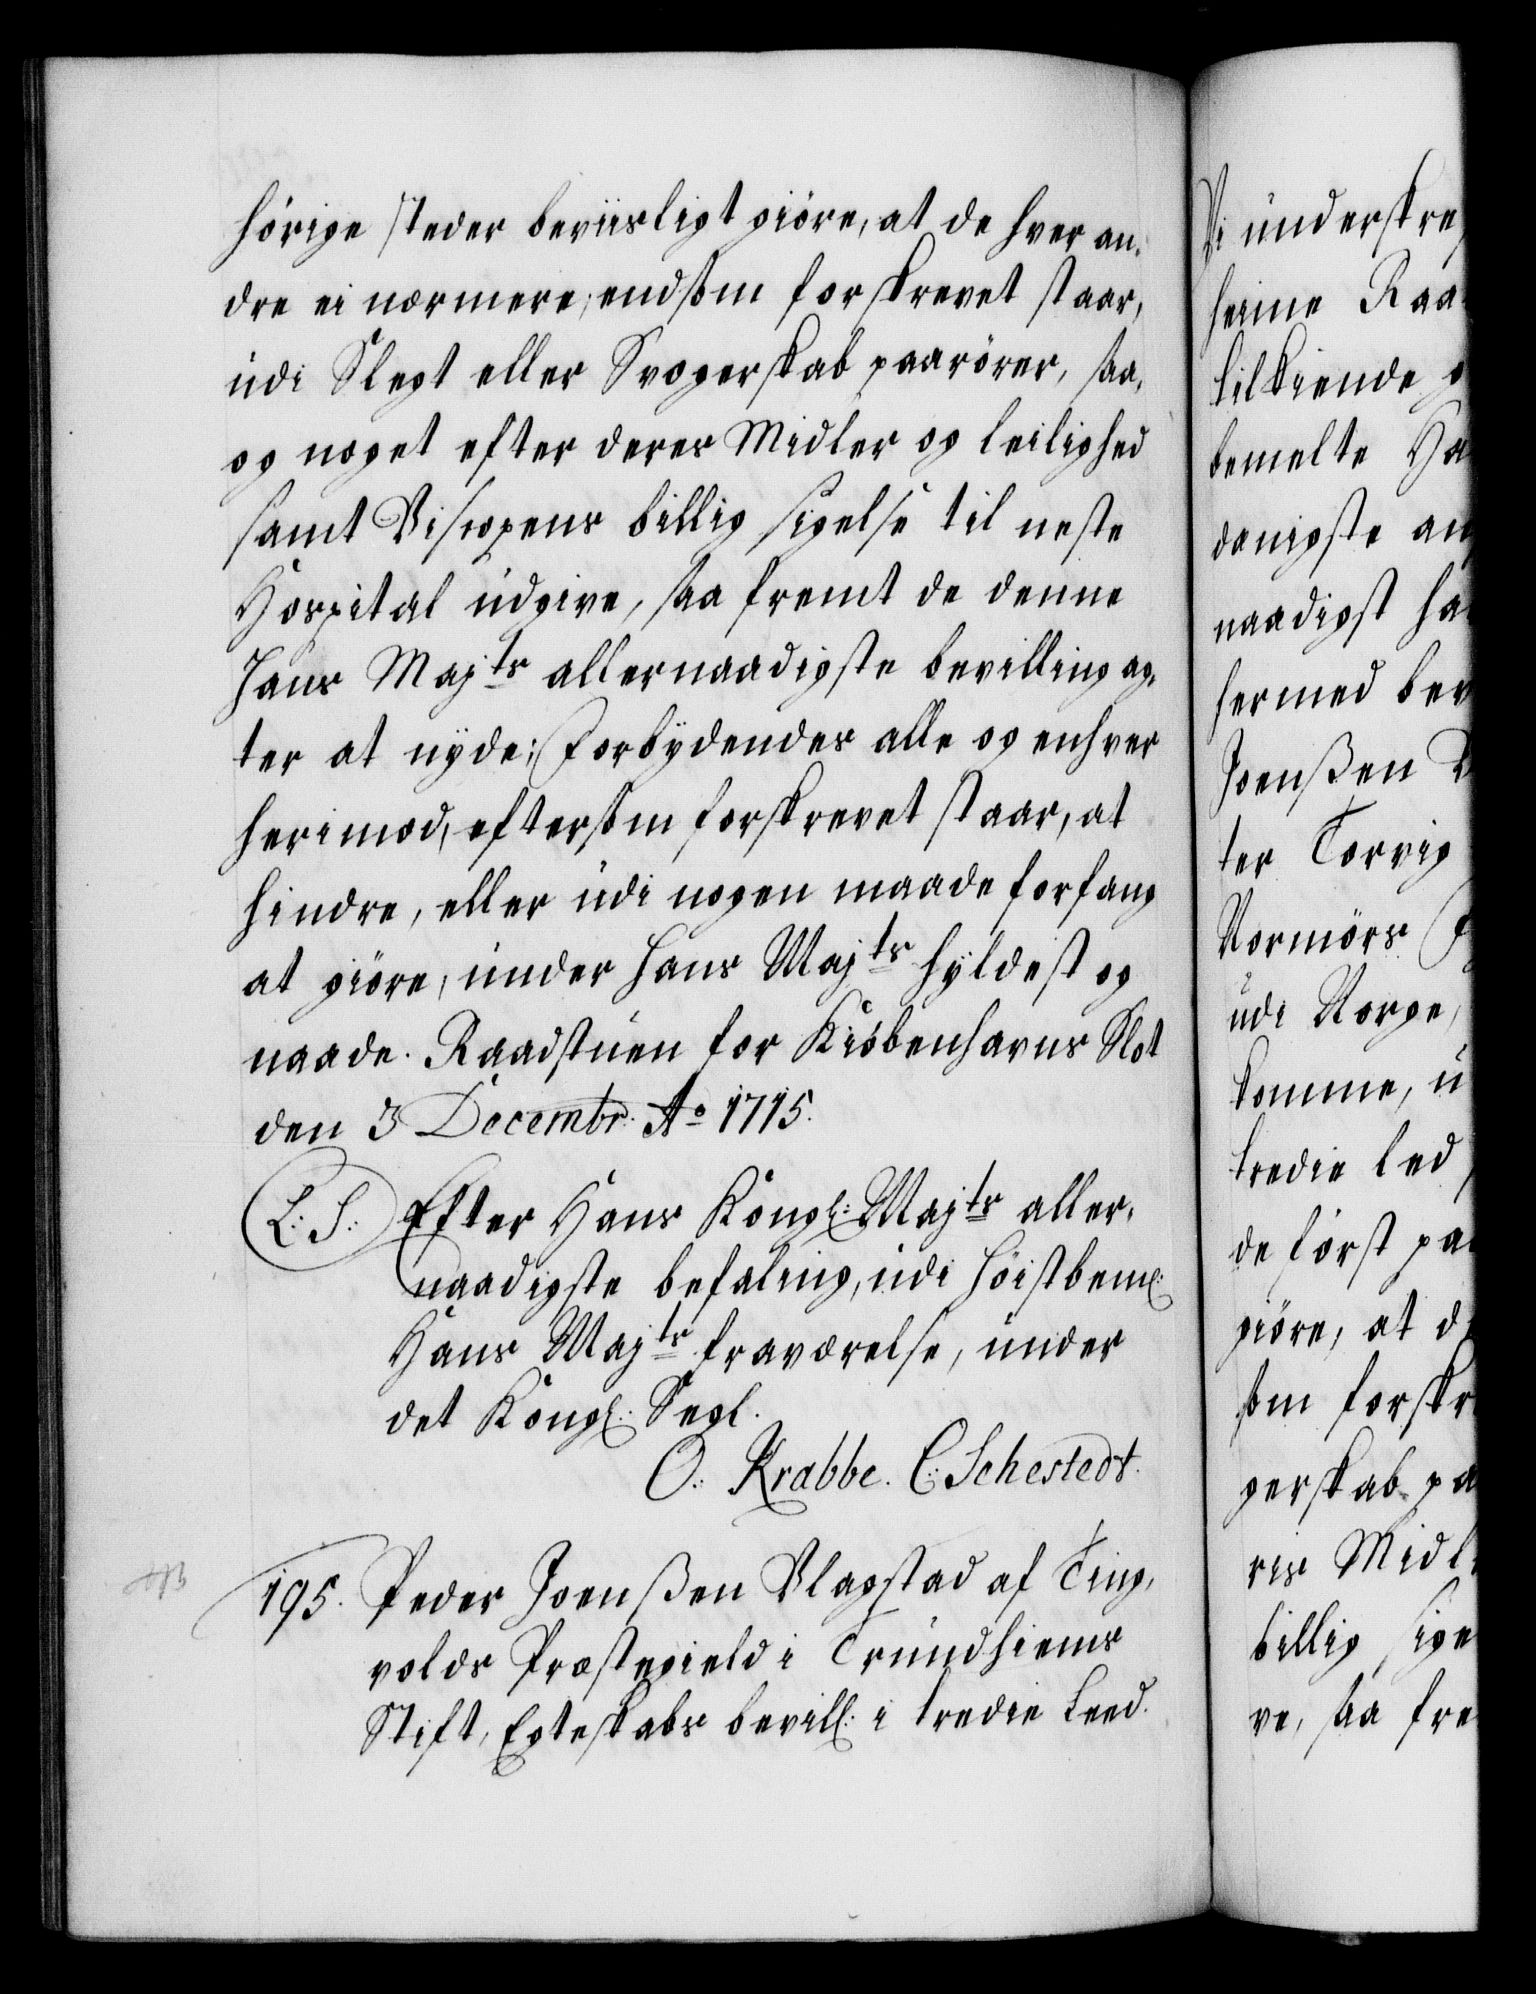 hörige steder beviisligt giöre, at de hver an-
dre ei nærmere, endsom forskrevet staar,
udi Slegt eller Svogerskab paarörer, saa,
og noget efter deres Midler og leilighed
samt Biscopens billig sigelse til neste
Hospital udgive, saa fremt de denne
Hans Majts allernaadigste bevilling ag-
ter at nyde; Forbydendes alle og enhver
herimod, eftersom forskrevet staar, at
hindre, eller udi nogen maade forfang
at giöre, under Hans Majts hyldest og
naade. Raadstuen for Kiöbenhavns Slot
den 3 Decembr. Ao 1715.
L. S. Efter Hans Kongl: Majts aller-
naadigste befaling, udi höistbeml:
Hans Majts fraværelse, under
det Kongl: Segl.
O: Krabbe. C: Schestedt.
195. Peder Joenßen Vlagstad af Ting-
volds Præstegield i Trundhiems
Stift, Egteskabs bevill: i tredie Leed.
Vi underskre
heime Raa
tilkiende g
bemelte Ha
danigste an
naadigst ha
hermed bev
Joenßen V
ter Torvig
Normörs F
udi Norge,
komme, u
tredie led,
de först paa
giöre, at d
som forskr
gerskab pa
ris Midl
billig sige
ve, saa fre